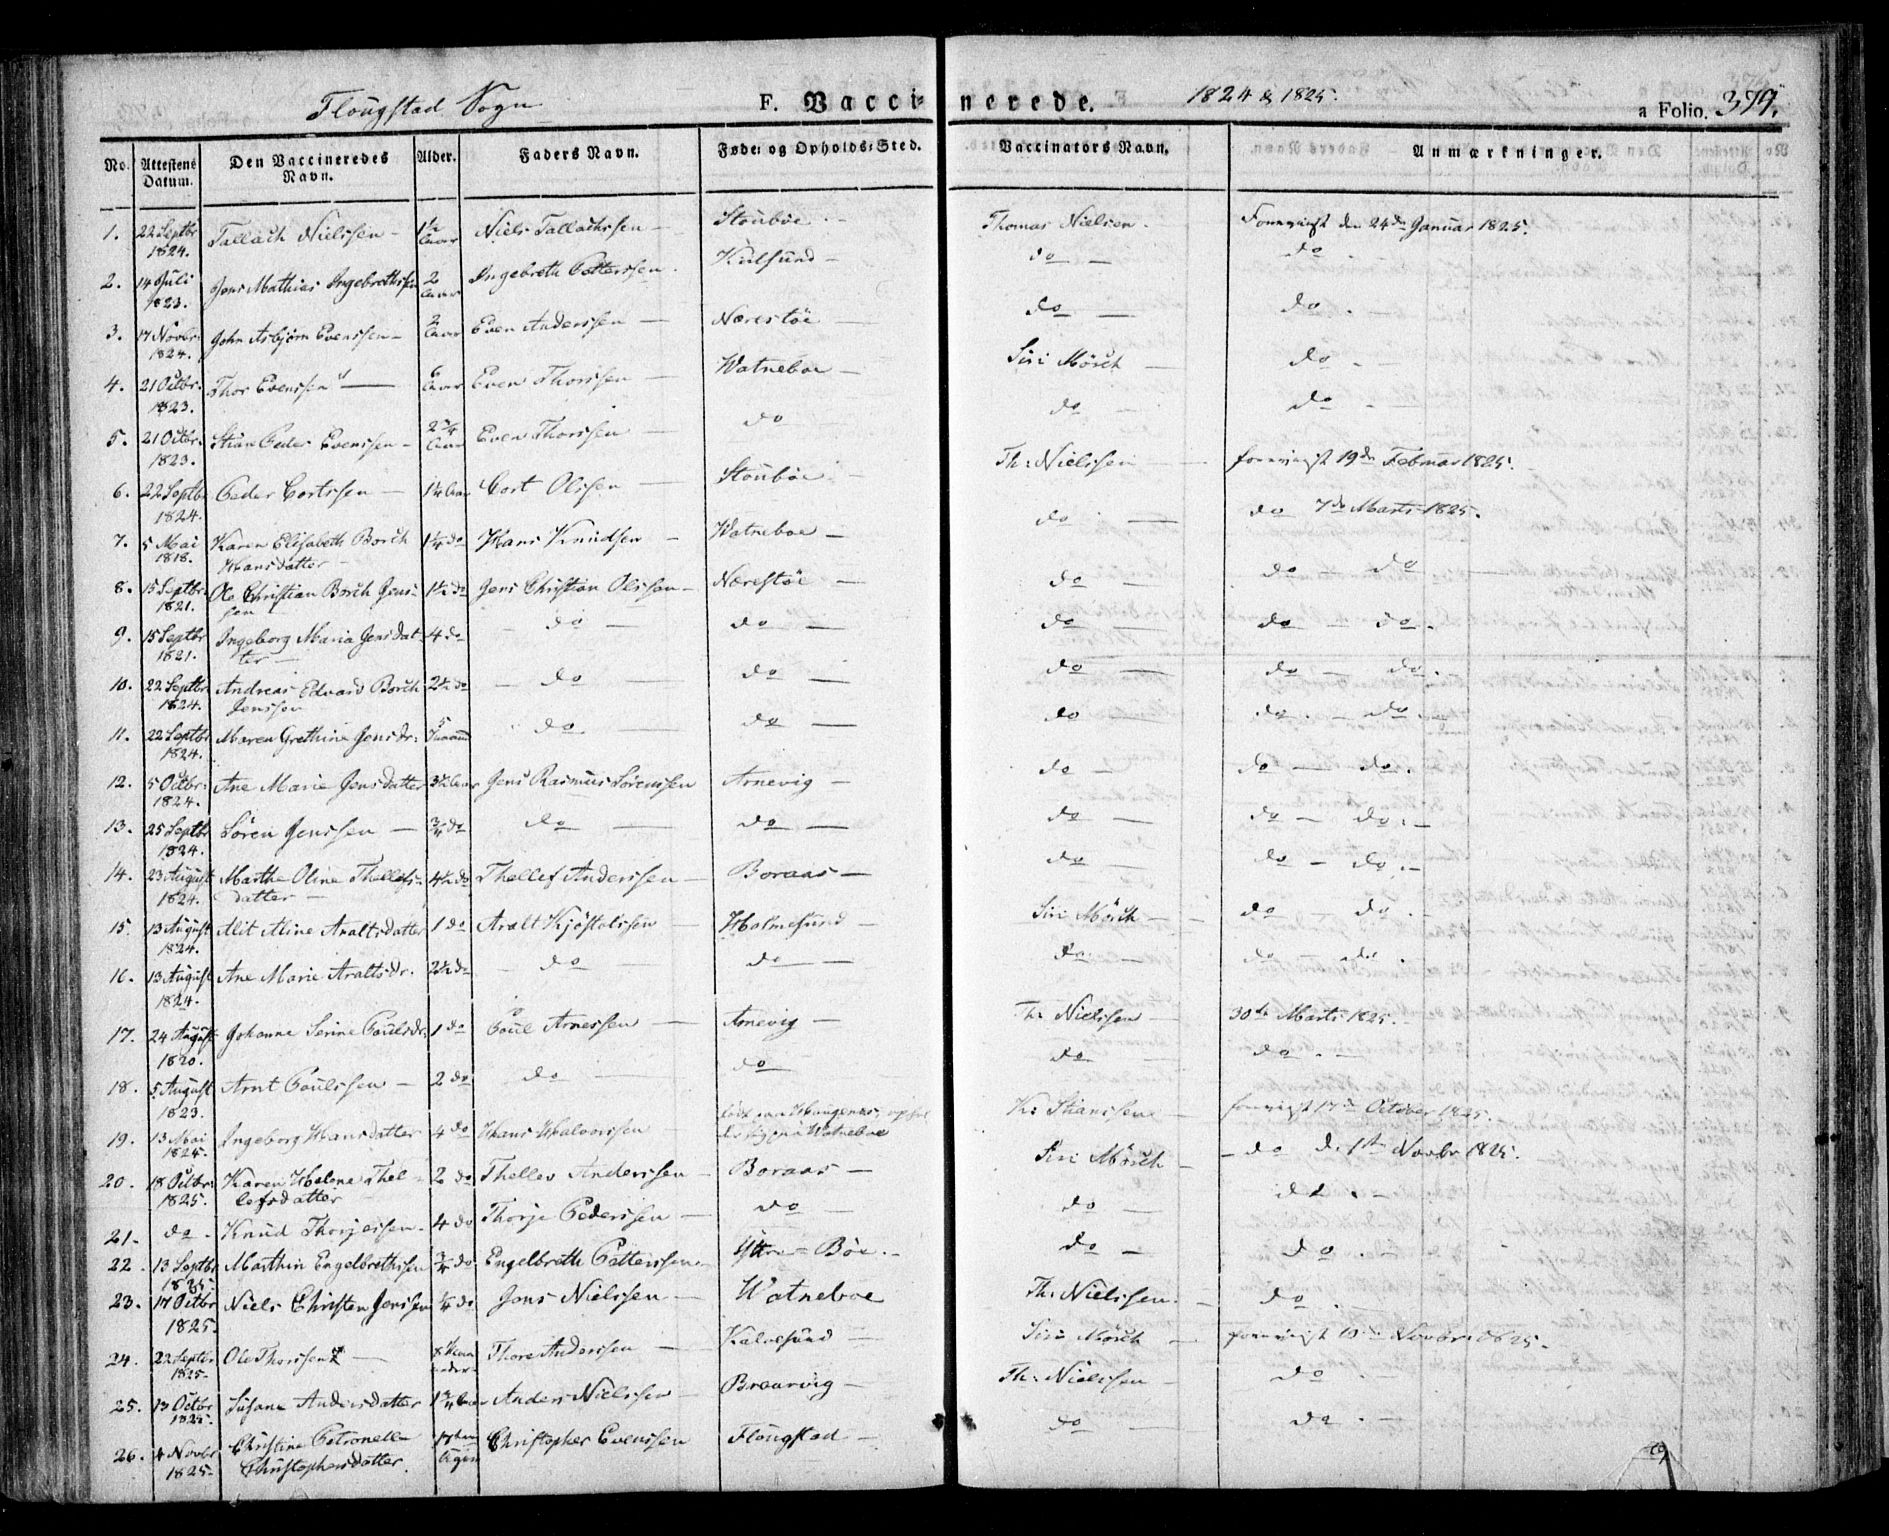 Flougstad Sogn F. Vaccinerede. 1824 & 1825. a Folio. 379.
No. Attestens Datum. Den Vaccineredes Navn. Alder. Faders Navn. Føde- og Opholds-Sted. Vaccinators Navn. Anmærkninger.
1. 22 Septbr 1824. Tallach Nielssen Niels Tallachssen Stoubøe Thomas Nielsen. den 24de Januar 1825.
2. 14 Juli 1823. Jens Mathias Ingebrethssen 2 Aar Ingebreth Petterssen Kulsund do do
3. 17 Novbr. 1824. John Asbjørn Evenssen 2 Aar Even Anderssen Nærestøe do do
4. 21 Octbr. 1823. Thor Evenssen Aar Even Thorssen Watneboe Siri Mörch do
5. 21 Octbr. 1823. Stian Peder Evenssen 2 3/4 Aar Even Thorssen do do do
6. 22 Septbr 1824. Peder Cortssen 1 1/4 Aar Cort Olssen Stoubøe Th: Nielssen 19de Februar 1825.
7. 5 Mai 1818. Karen Elisabeth Borch Hansdatter 1 1/4 do Hans Knudsen Watneboe do do 7de Marts 1825.
8. 15 Septbr. 1821. Ole Christian Borch Jenssen 1 1/2 do Jens Christian Olssen Nærestøe do do do
9. 15 Septbr 1821. Ingeborg Maria Jensdatter 4 do do do do do do
10. 22 Septbr 1824. Andreas Edvard Borch Jenssen 2 1/2 do do do do do do
11. 22 Septbr 1824. Maren Grethine Jensdr. do do do do do
12. 5 Octbr. 1824. Ane Marie Jensdatter 3 1/2 Aar Jens Rasmus Sörenssen Arnevig do do do
13. 25 Septbr 1824. Sören Jenssen 3/4 do do do do do do
14. 23 August 1824. Marthe Oline Thellefsdatter 4 1/2 do Thellef Anderssen Boraas do do do
15. 13 August 1824. Alit Aline Araltsdatter 1 do Aralt Kjöstolssen Holmesund Siri Mörch do do
16. 13 August 1824. Ane Marie Araltsdr. 2 1/2 do do do do do do
17. 24 August 1820. Johanne Serine Poulsdr. 1 do Poul Arnessen Arnevig Th: Nielssen 30te Marts 1825.
18. 5 August 1823. Arnt Poulssen 2 do do do do do
19. 13 Mai 1825. Ingeborg Hansdatter 4 do Hans Halvorssen Watneboe K: Stianssen 17de October 1825.
20. 18 Octbr. 1825. Karen Helene Thellefsdatter 2 do Thellev Anderssen Boraas Siri Mörch do d. 1ste Novbr 1825.
21. do Knud Thorjessen 4 do Thorje Pederssen do do do
22. 13 Septbr 1825. Marthin Engelbrethssen 3/4 do Engelbreth Petterssen Yttre Böe do do
23. 17 Octbr 1825. Niels Christen Jenssen 1/4 do Jens Nielssen Watneboe Th: Nielssen do
24. 22 Septbr 1825. Ole Thorssen Thore Anderssen Kalvesund Siri Mörch 10de Novbr 1825.
25. 13 Octbr 1825. Susane Andersdatter 1 3/4 Aar Anders Nielssen Brearvig Th: Nielssen do
26. 4 Novbr 1825. Christine Petronelle Christophersdatter Christopher Evenssen Flougstad do do